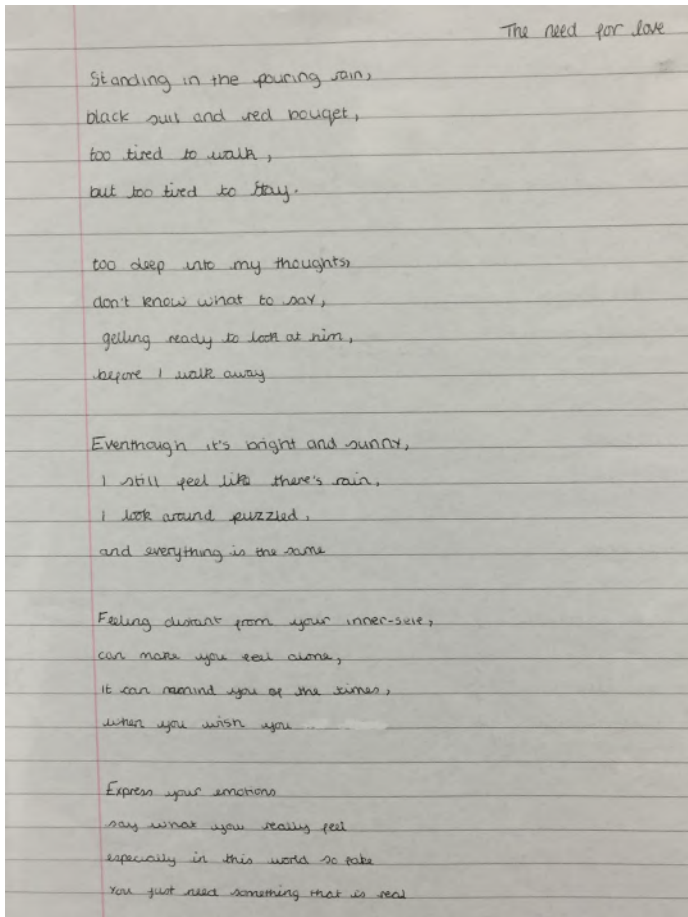 The need for love
Standing in the pouring rain,
black suit and red bouqet,
too tired to walk,
but too tired to stay.
too deep into my thoughts,
don't know what to say,
getting ready to look at him,
before I walk away
Eventhough it's bright and sunny,
I still feel like there's rain,
I look around puzzled,
and everything is the same
Feeling distant from your inner-self,
can make you feel alone,
it can remind you of the times,
when you wish you
Express your emotions
say what you really feel
especially in this world so fake
You just need something that is real